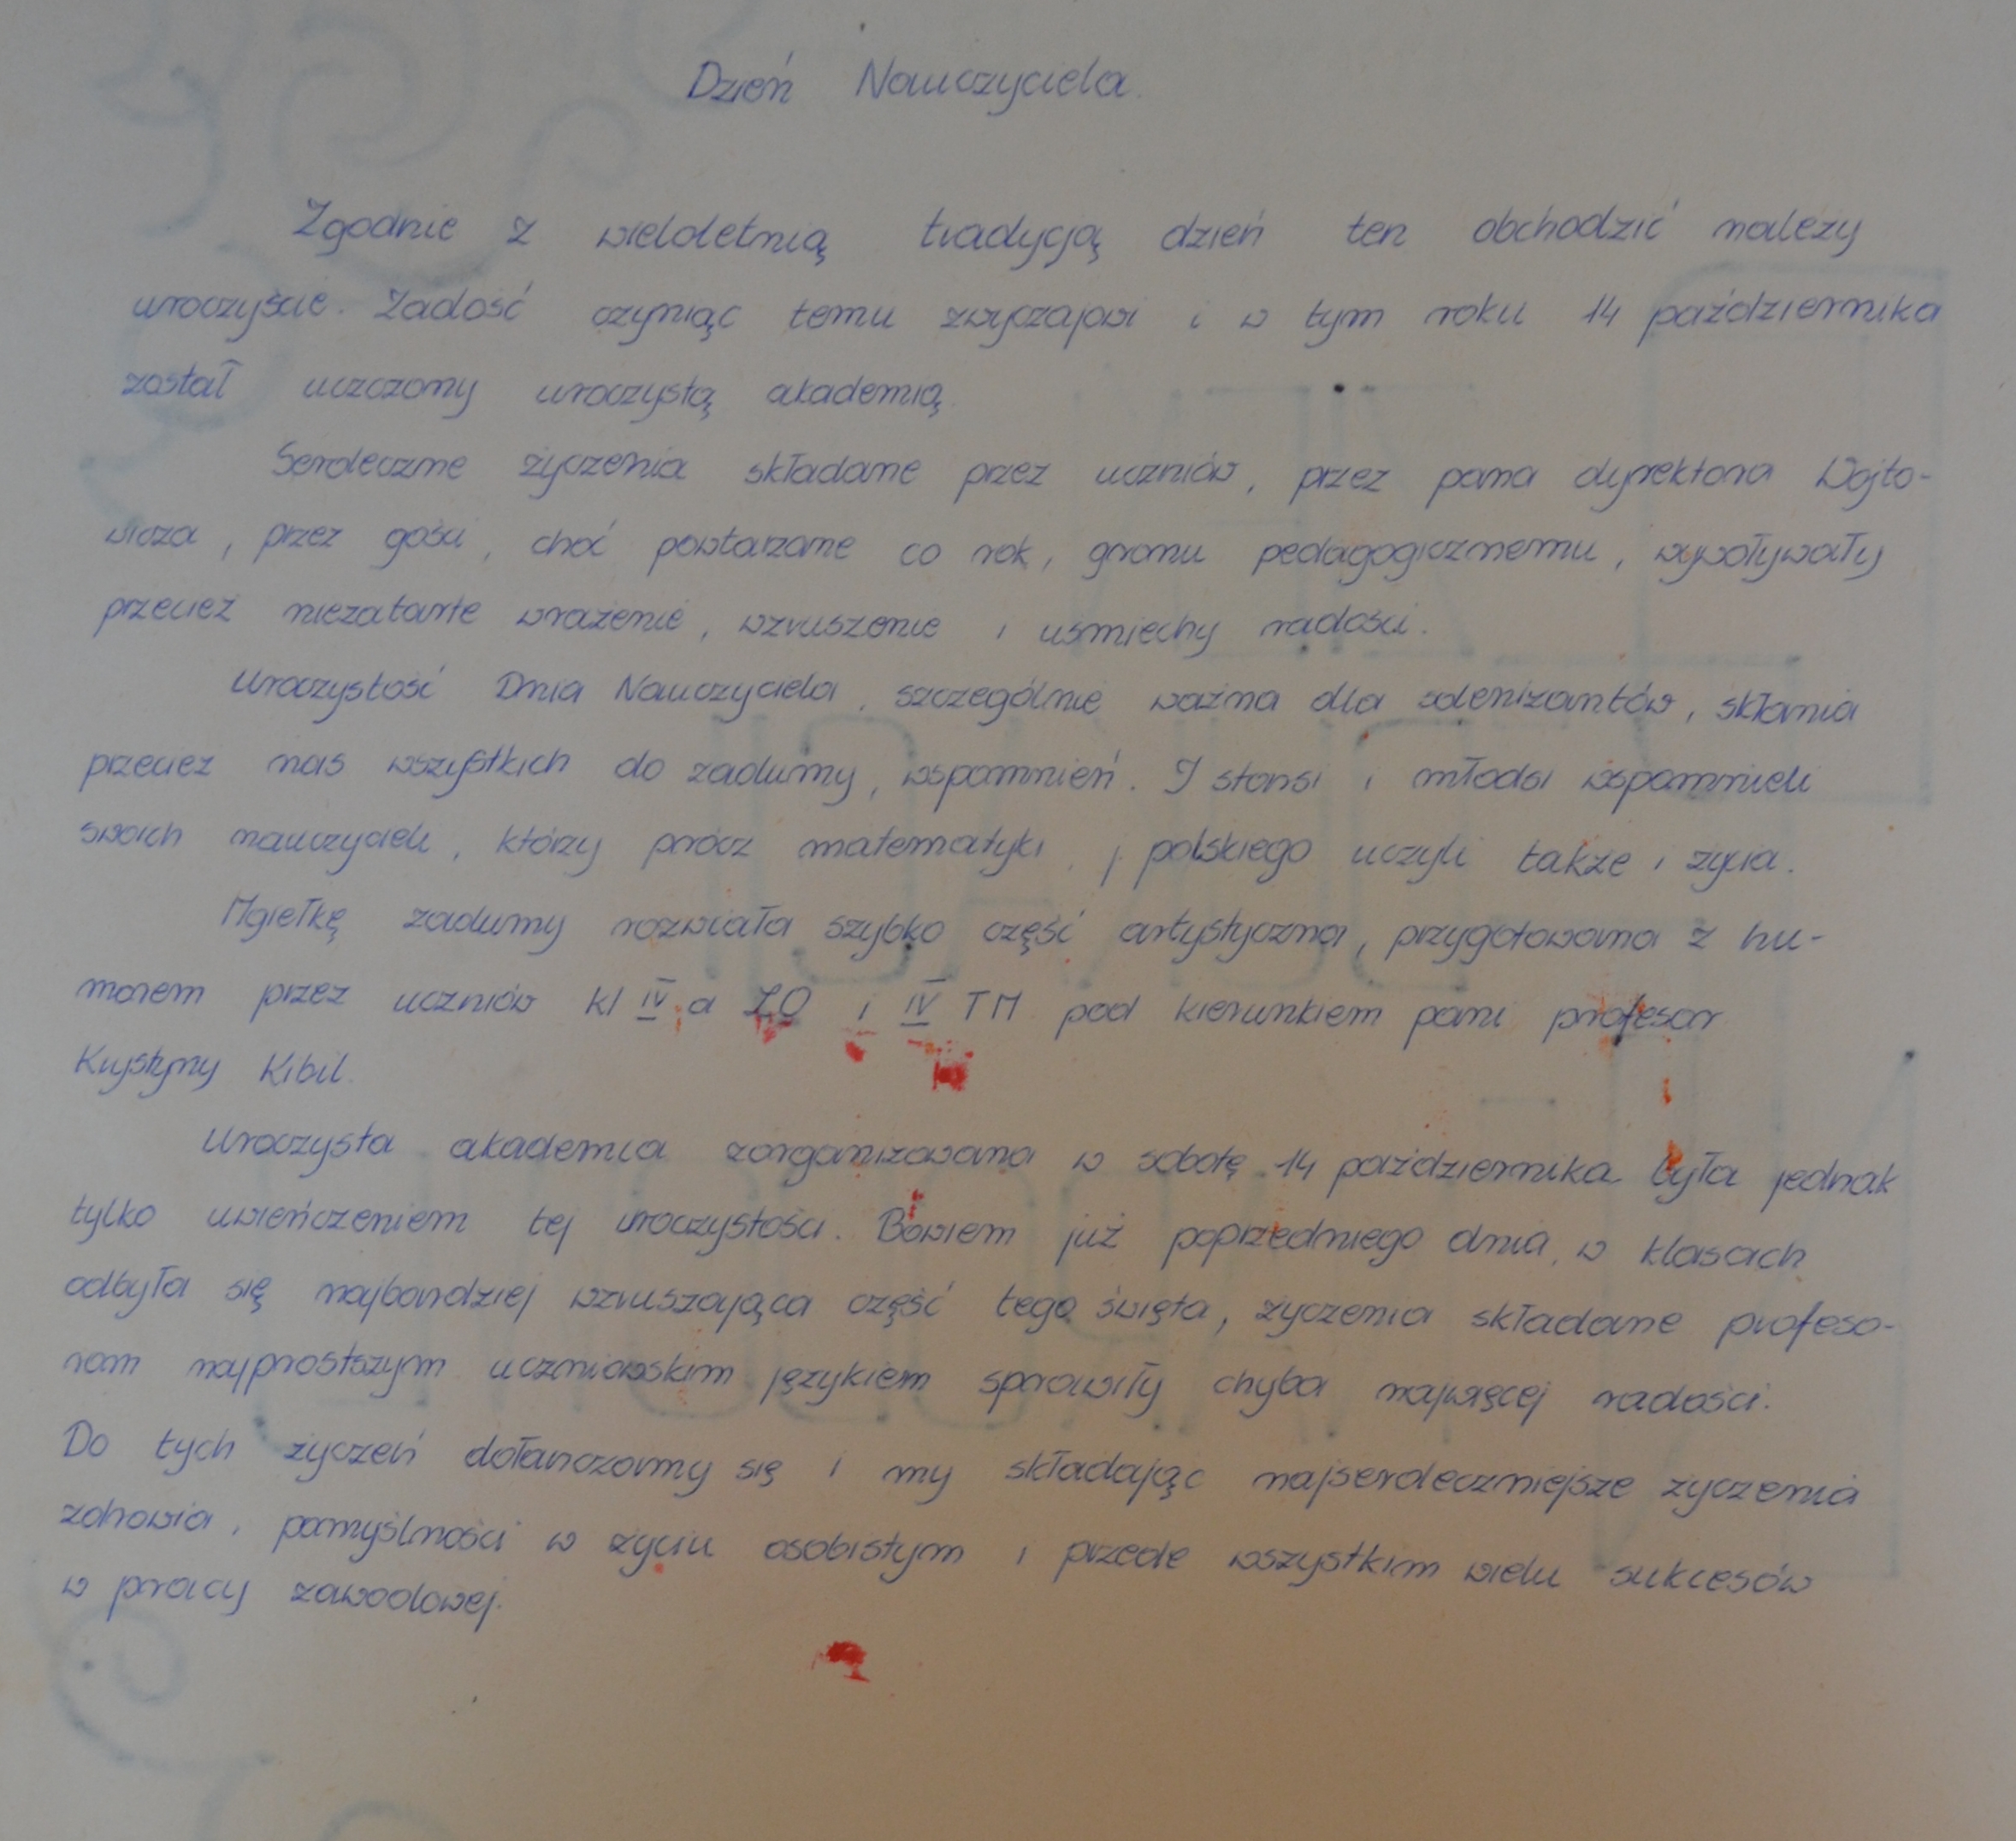 Dzień Nauczyciela.
Zgodnie z wieloletnią tradycją dzień ten obchodzić należy
uroczyście. Zadość czyniąc temu zwyczajowi i w tym roku 14 października
został uczczony uroczystą akademią.
Serdeczne życzenia składane przez uczniów, przez pana dyrektora Wójto-
wicza, przez gości, choć powtarzane co rok, gronu pedagogicznemu, wywoływały
przecież niezatarte wrażenie, wzruszenie i uśmiechy radości.
Uroczystość Dnia Nauczyciela, szczególnie ważna dla solenizantów, skłania
przecież nas wszystkich do zadumy, wspomnień. I starsi i młodsi wspomnieli
swoich nauczycieli, którzy prócz matematyki, j. polskiego uczyli także i życia.
Mgiełkę zadumy rozwiała szybko część artystyczna, przygotowana z hu-
morem przez uczniów kl IV a LO i IV TM pod kierunkiem pani profesor
Krystyny Kibil.
Uroczysta akademia zorganizowana w sobotę 14 października była jednak
tylko uwieńczeniem tej uroczystości. Bowiem już poprzedniego dnia, w klasach
odbyła się najbardziej wzruszająca część tego święta, życzenia składane profeso-
rom najprostszym uczniowskim językiem sprawiły chyba najwięcej radości.
Do tych życzeń dołanczamy się i my składając najserdeczniejsze życzenia
zdrowia, pomyślności w życiu osobistym i przede wszystkim wielu sukcesów
w pracy zawodowej.